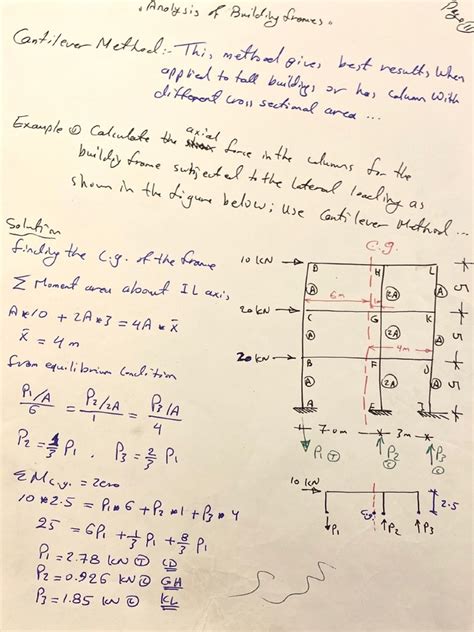 Analysis of Building frames.
Page
Cantilever Method:- This method gives best results when
applied to tall buildings or has column with
different cross sectional area ...
Example ① Calculate the axial force in the columns for the
building frame subjected to the lateral loading as
shown in the figure below; Use Cantilever Method...
Solution
finding the C.g. of the frame
Σ Moment area about IL axis
A*10 + 2A*3 = 4A * x̄
x̄ = 4 m
from equilibrium condition
P1/A / 6 = P2/2A / 1 = P3/A / 4
P2 = 1/3 P1 , P3 = 2/3 P1
ΣMc.g. = zero
10*2.5 = P1*6 + P2*1 + P3*4
25 = 6P1 + 1/3 P1 + 8/3 P1
P1 = 2.78 kN Ⓣ CD
P2 = 0.926 kN Ⓒ GH
P3 = 1.85 kN Ⓒ KL
C.g.
10 kN
D H L
A 2A A
5
6m 1
20 kN
C G K
A 2A A
5
4m
20 kN
B F J
A 2A A
5
A E I
7.0m 3m
P1 Ⓣ P2 Ⓒ P3 Ⓒ
10 kN
2.5
Cg
P1 P2 P3